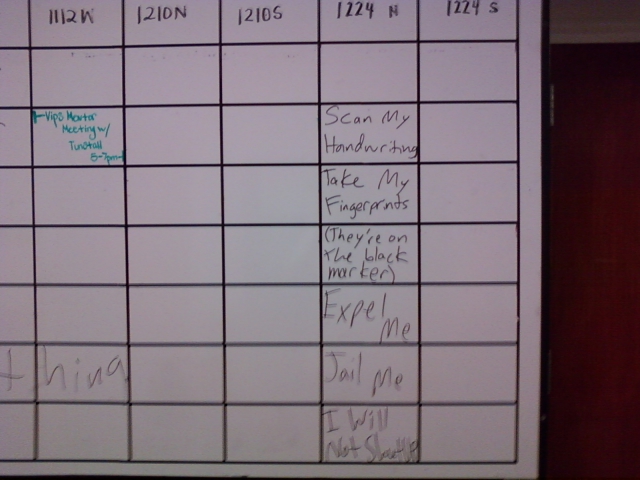 1112W 1210N 1210S 1224 N 1224 S
Vips Mentor
Meeting w/
Tunstall
5-7pm
Scan My
Handwriting
Take My
Fingerprints
(They're on
the black
marker)
Expel
Me
thing
Jail Me
I Will
Not